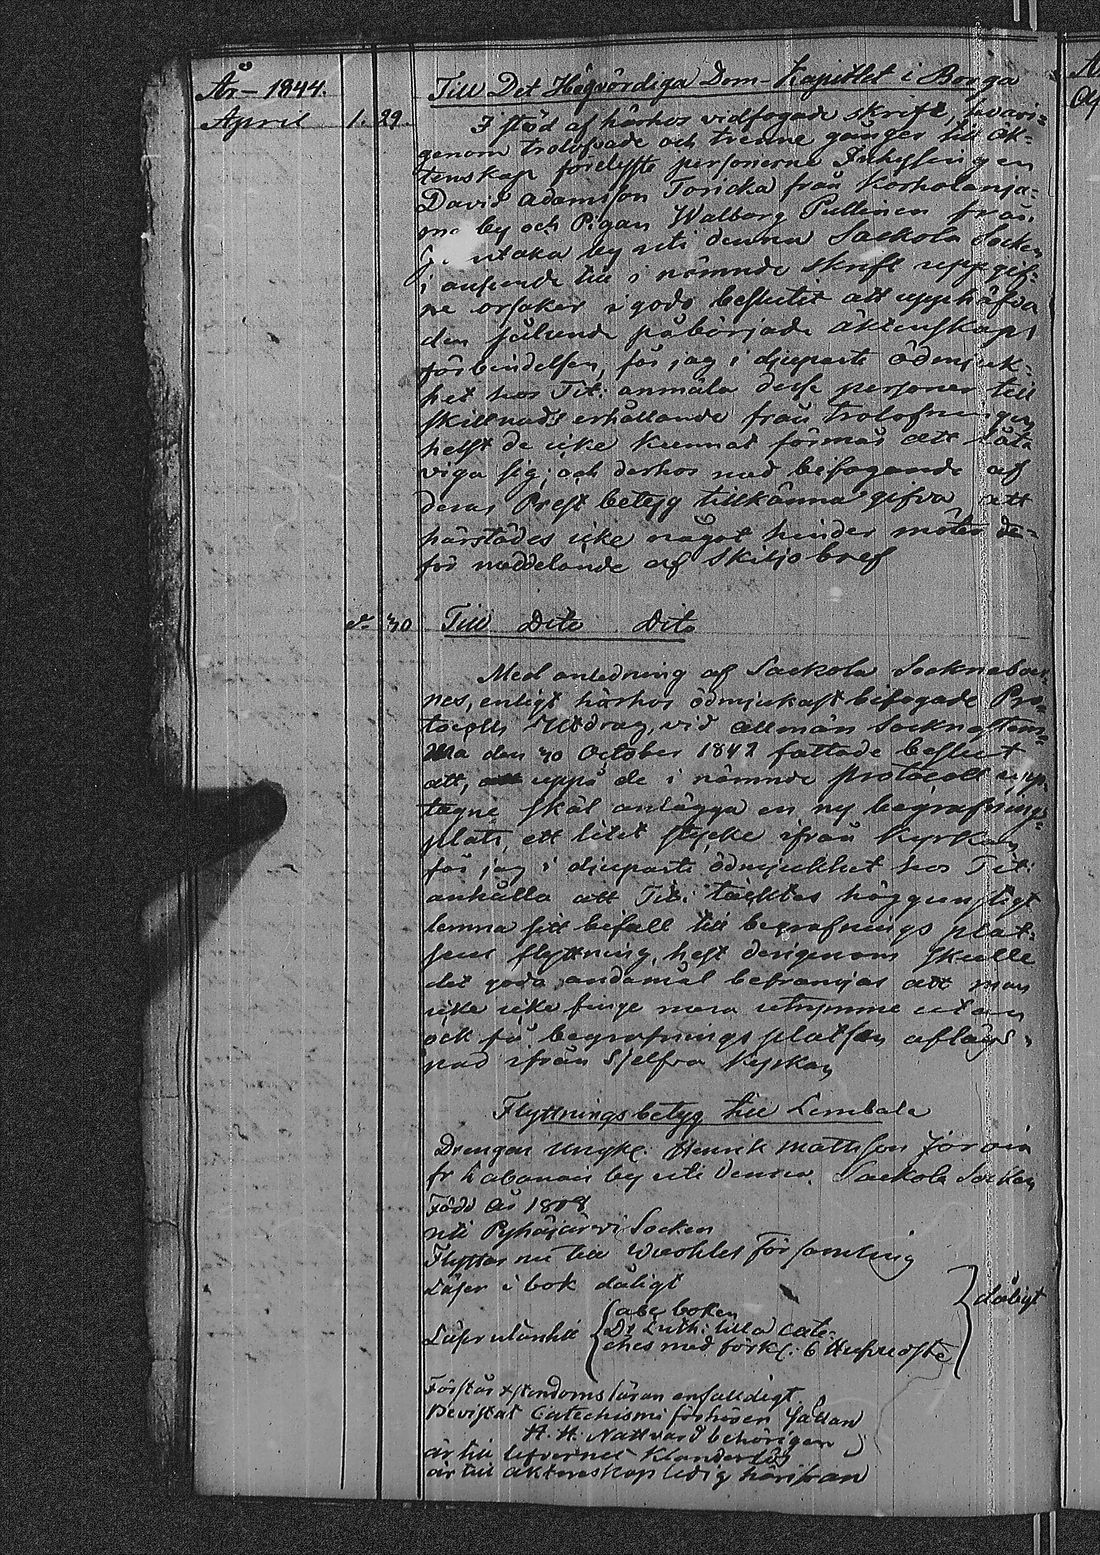 År 1844.
April 1. 29. Till Det Högvördiga Dom-Kapitlet i Borgå
I stöd af härhos vidfogade skrift, hvari-
genom trolofvade och trenne gånger till äk-
tenskap förelyste personerne Inhysingen
David Adamsson Toricka från Korholanja-
me by och Pigan Walborg Pullinen från
utaka by uti denna Sackola Socken
i anseende till i nämnde skrift uppgif-
ne orsaker i godo beslutit att upphäfva
den sålunde påbörjade äktenskaps
förbindelsen, får jag i djupaste ödmjuk-
het hos Tit: anmäla desse personer till
skillnads erhållande från trolofningen
helst de icke kunnat förmås att låta
viga sig; och derhos med bifogande af
deras Prest betyg tillkänna gifva att
härstädes icke något hinder möter de-
för meddelande af Skiljobref
d:o 30 Till Dito Dito
Med anledning af Sackola Sockneboer-
nes, enligt härhos ödmjukast bifogade Pro-
tocolls Utdrag, vid allmän Socknestäm-
ma den 30 October 1842 fattade beslut
att, uppå de i nämnde protocoll upp-
tagne skäl anlägga en ny begrafnings-
plats, ett litet stycke ifrån Kyrkan
får jag i djupaste ödmjukhet hos Tit:
anhålla att Tit: täcktes höggunstigt
lemna sitt bifall till begrafnings plat-
sens flyttning, helst derigenom skulle
det goda ändamål befrämjas att man
icke icke finge mera utrymme utan
ock få begrafnings platsen aflägs-
nad ifrån Sjelfva Kyrkan
Flyttningsbetyg till Lembala
Drengen Ungk. Henrik Mattsson Jörvin
fr Labanais by uti denna Sackola Socken
Född År 1808
uti Pyhäjärvi Socken
Flyttar nu till Wuohles församling
Läser i bok dåligt
Läser utantill abc boken
D: Luth: lilla cate-
ches med förkl. 6 Hufvudst. dåligt
Förstår Xstendoms läran enfalldigt
Bevistat Catechismi förhören sällan
H. H. Nattvard behörigen
är till lefvernet Klanderlös
är till äktenskap ledig härifrån